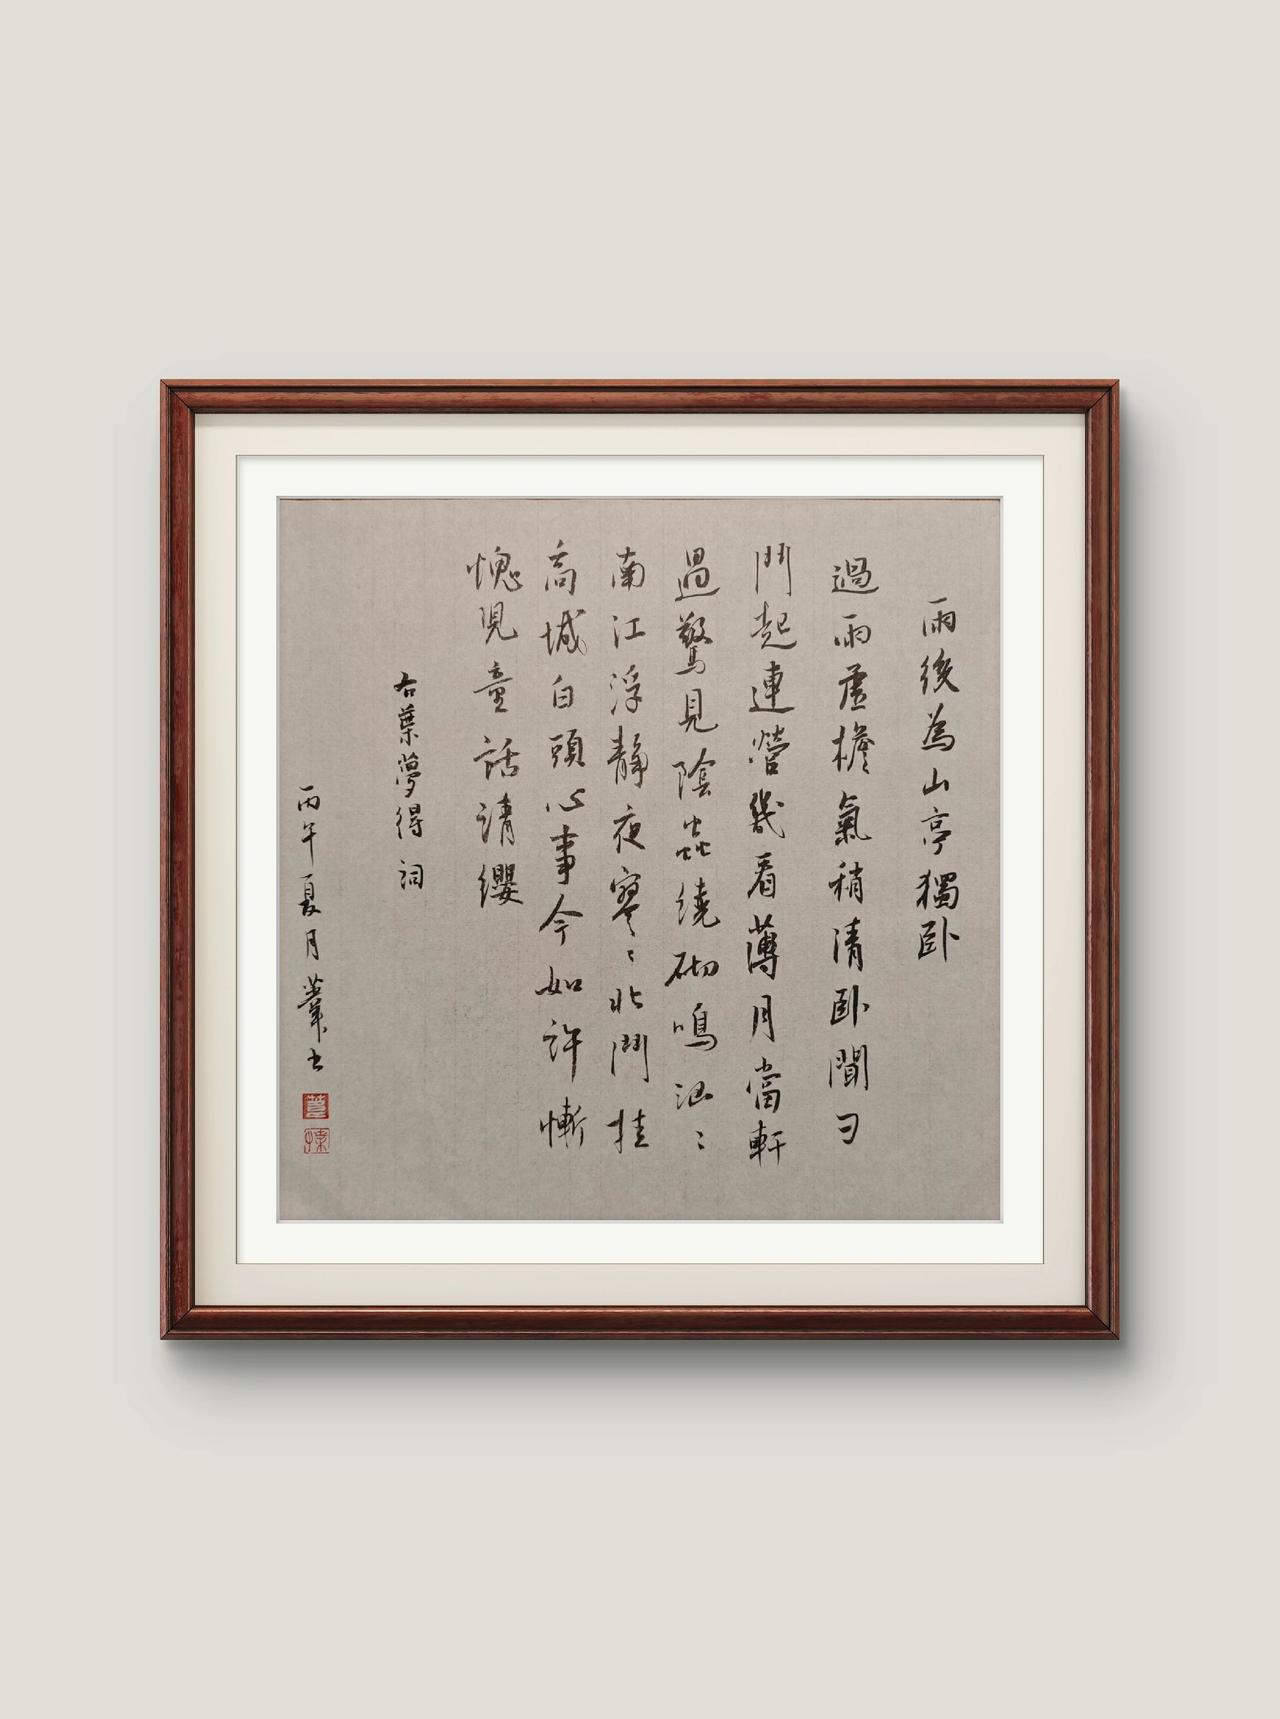 雨後為山亭獨卧
過雨虛檐氣稍清卧聞刁
鬥起連營幾看薄月當軒
過驚見陰蟲繞砌鳴汹〻
南江浮靜夜寥〻北鬥挂
高城白頭心事今如許慚
愧兒童話請纓
右葉夢得詞
丙午夏月葦书